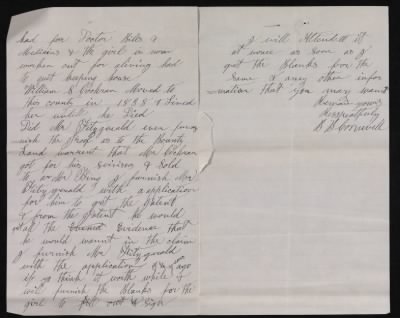 had for Doctor Bills &
Medicins & the girl is now
working out for a living had
to quit keeping house
William S Cochran Moved to
this county in 1838 & Lived
her untill he Died
Did Mr Fitzgerald ever furn
-nish the Proof as to the Bounty
Land warrent that Mr Cochran
got for his servises & Sold
to a Mr King I furnish Mr
Fitzgerald with a application
for him to get the Patent
& from the Patent he would
all the Evidence that
he would want in the claim
I furnish Mr Fitzgerald
with the application ago
if you think it worth while I
will furnish the Blanks for the
girl to fill out & sign
I will Attend to it
at wonce as soon as I
get the Blanks for the
same & any other infor
-mation that you may want
Remain yours
Respectfully
B B Cornwell